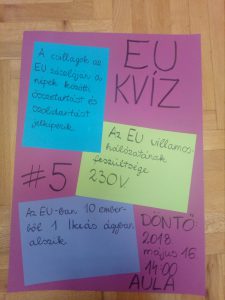 EU
KVÍZ
A csillagok az
EU zászlaján a
népek közötti
összetartást és
szolidaritást
jelképezik.
Az EU villamos-
hálózatának
feszültsége
230V.
#5
Az EU-ban 10 ember-
ből 1 Ikeás ágyban
alszik.
DÖNTŐ
2018
május 16
14:00
AULA